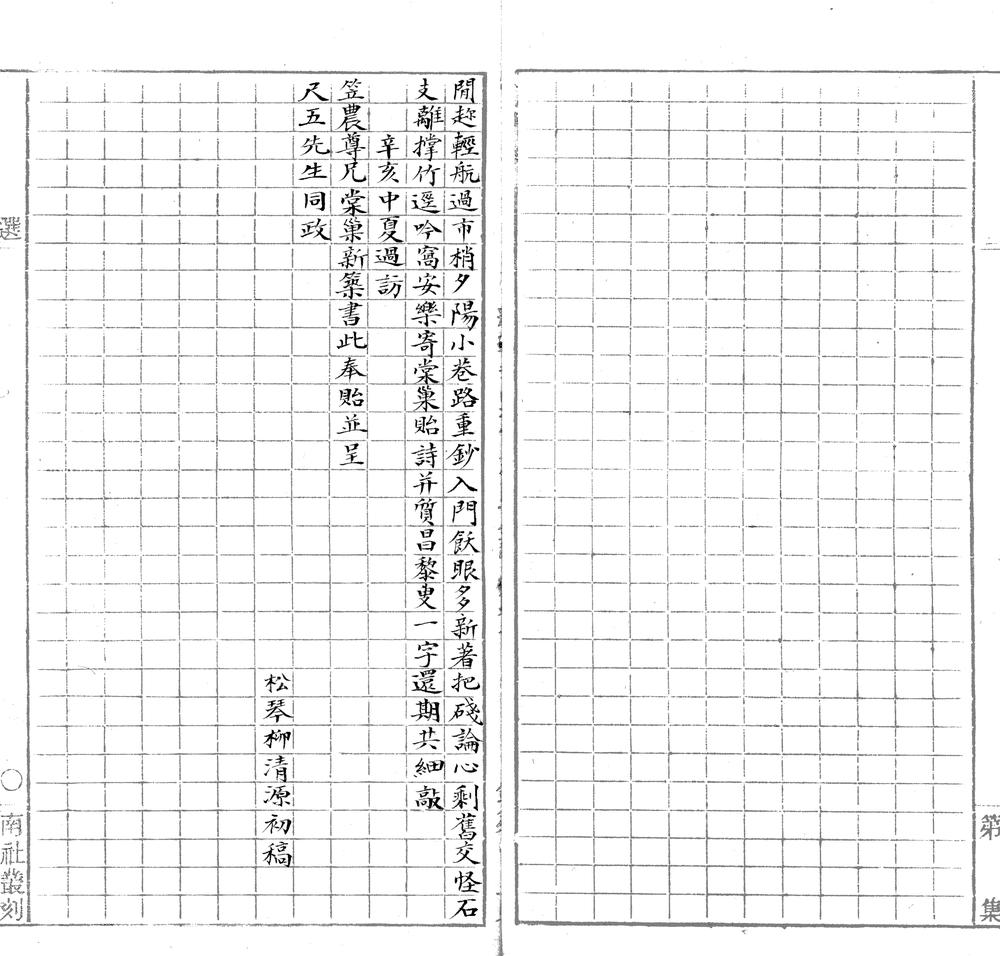 第 集
閒趂輕航過市梢夕陽小巷路重鈔入門飫眼多新著把醆論心剩舊交怪石
支離撐竹逕吟窩安樂寄棠巢貽詩并質昌黎叟一字還期共細敲
辛亥中夏過訪
笠農尊兄棠巢新築書此奉貽並呈
尺五先生同政
松琴柳清源初稿
選 〇南社叢刻